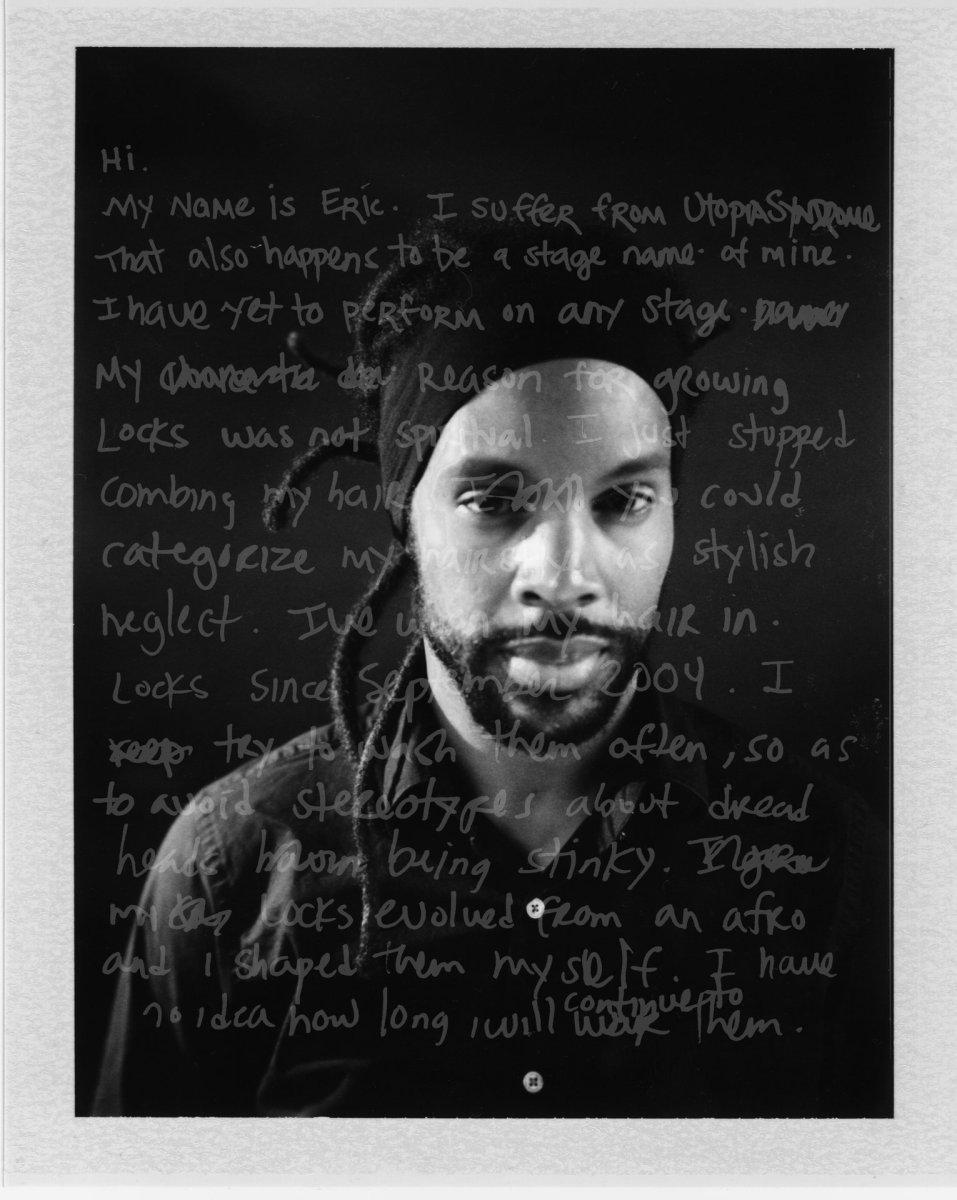 Hi.
My Name is Eric. I suffer from UtopiaSyndrome
That also happens to be a stage name of mine.
I have yet to perform on any stage.
My reason for growing
Locks was not spiritual. I just stopped
combing my hair. you could
categorize my hairstyle as stylish
neglect. I've worn my hair in
Locks since September 2004. I
keep try to wash them often, so as
to avoid stereotypes about dread
heads being stinky.
my Locks evolved from an afro
and i shaped them myself. I have
continue to
no idea how long i will wear them.